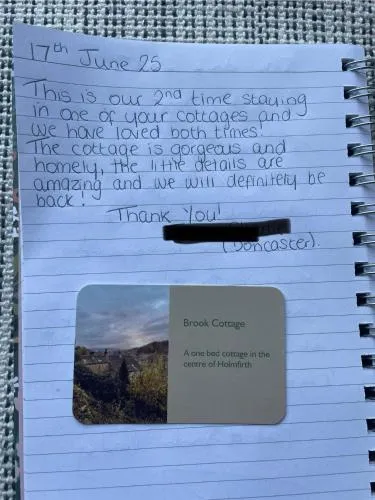 17th June 25
This is our 2nd time staying
in one of your cottages and
we have loved both times!
The cottage is gorgeous and
homely, the little details are
amazing and we will definitely be
back!
Thank You!
(Doncaster).
Brook Cottage
A one bed cottage in the
centre of Holmfirth